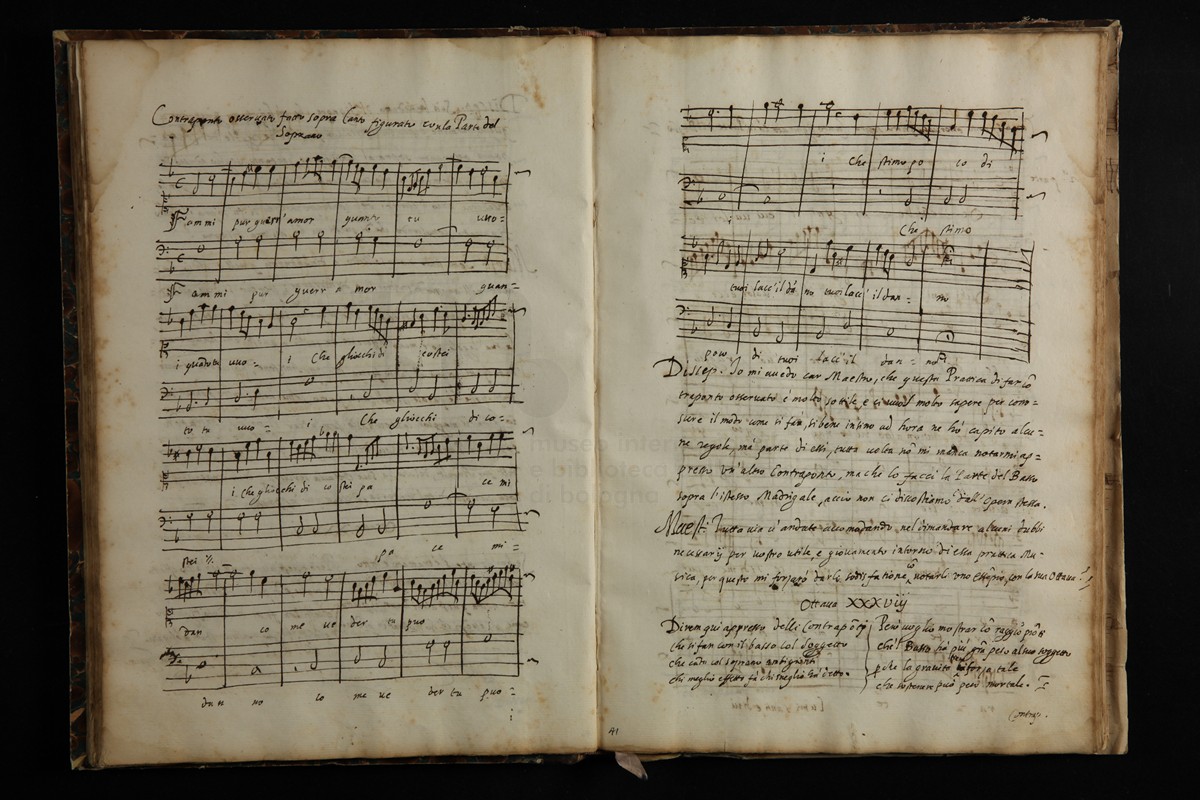 Contraponto osservato fatto sopra Canto figurato con la Parte del
Soprano
Fammi pur guerr' amor quanto tu vuo=
Fammi pur guerr a mor quan=
i quanto tu vuo= i Che gliocchi di costei
to tu vuo= i Che gliocchi di co=
i Che gliocchi di co stei pa ce mi
stei pa ce mi=
dan co me ve der tu puo
dan no co me ve der tu puo=
i
i Che stimo po co di
i Che stimo
tuoi lacc' il da no tuoi lacc' il dan= no
poco di tuoi lacc' il dan= no
Discep. Io mi avedo car Maestro, che questa Pratica di far cō
traponto osservato è molto sottile, e ci vuol molto sapere per cono=
scere il modo come si fà, si bene insino ad hora ne hò capito alcu=
ne regole, mà parte di essi, tutta volta nō mi manca notarmi ap=
presso un' altro Contraponto, ma che lo facci la Parte del Basso
sopra l'istesso Madrigale, acciò non ci discostiamo dall' opera stessa.
Maest: Tutta via v' andate accomodando nel dimandare alcuni dubbi
necessarij per vostro utile, e giovamento intorno di essa prattica Mu-
sica, per questo mi forzarò darle sodisfatione, cō notarli uno essempio, con la sua Ottava:
Ottava XXXVIJ
Direm qui appresso delli Contrapōti
che si fan con il basso col soggetto
che cātò col soprano
chi meglio effetto fà chi meglio hà detto.
Però voglio mostrar cō raggiō prōta
che'l Basso hà più grā peso al suo soggetto
pche la gravità hà forza tale
che sostenere può peso mortale.
Contrap.
41
museo inter
e biblioteca
di bologna